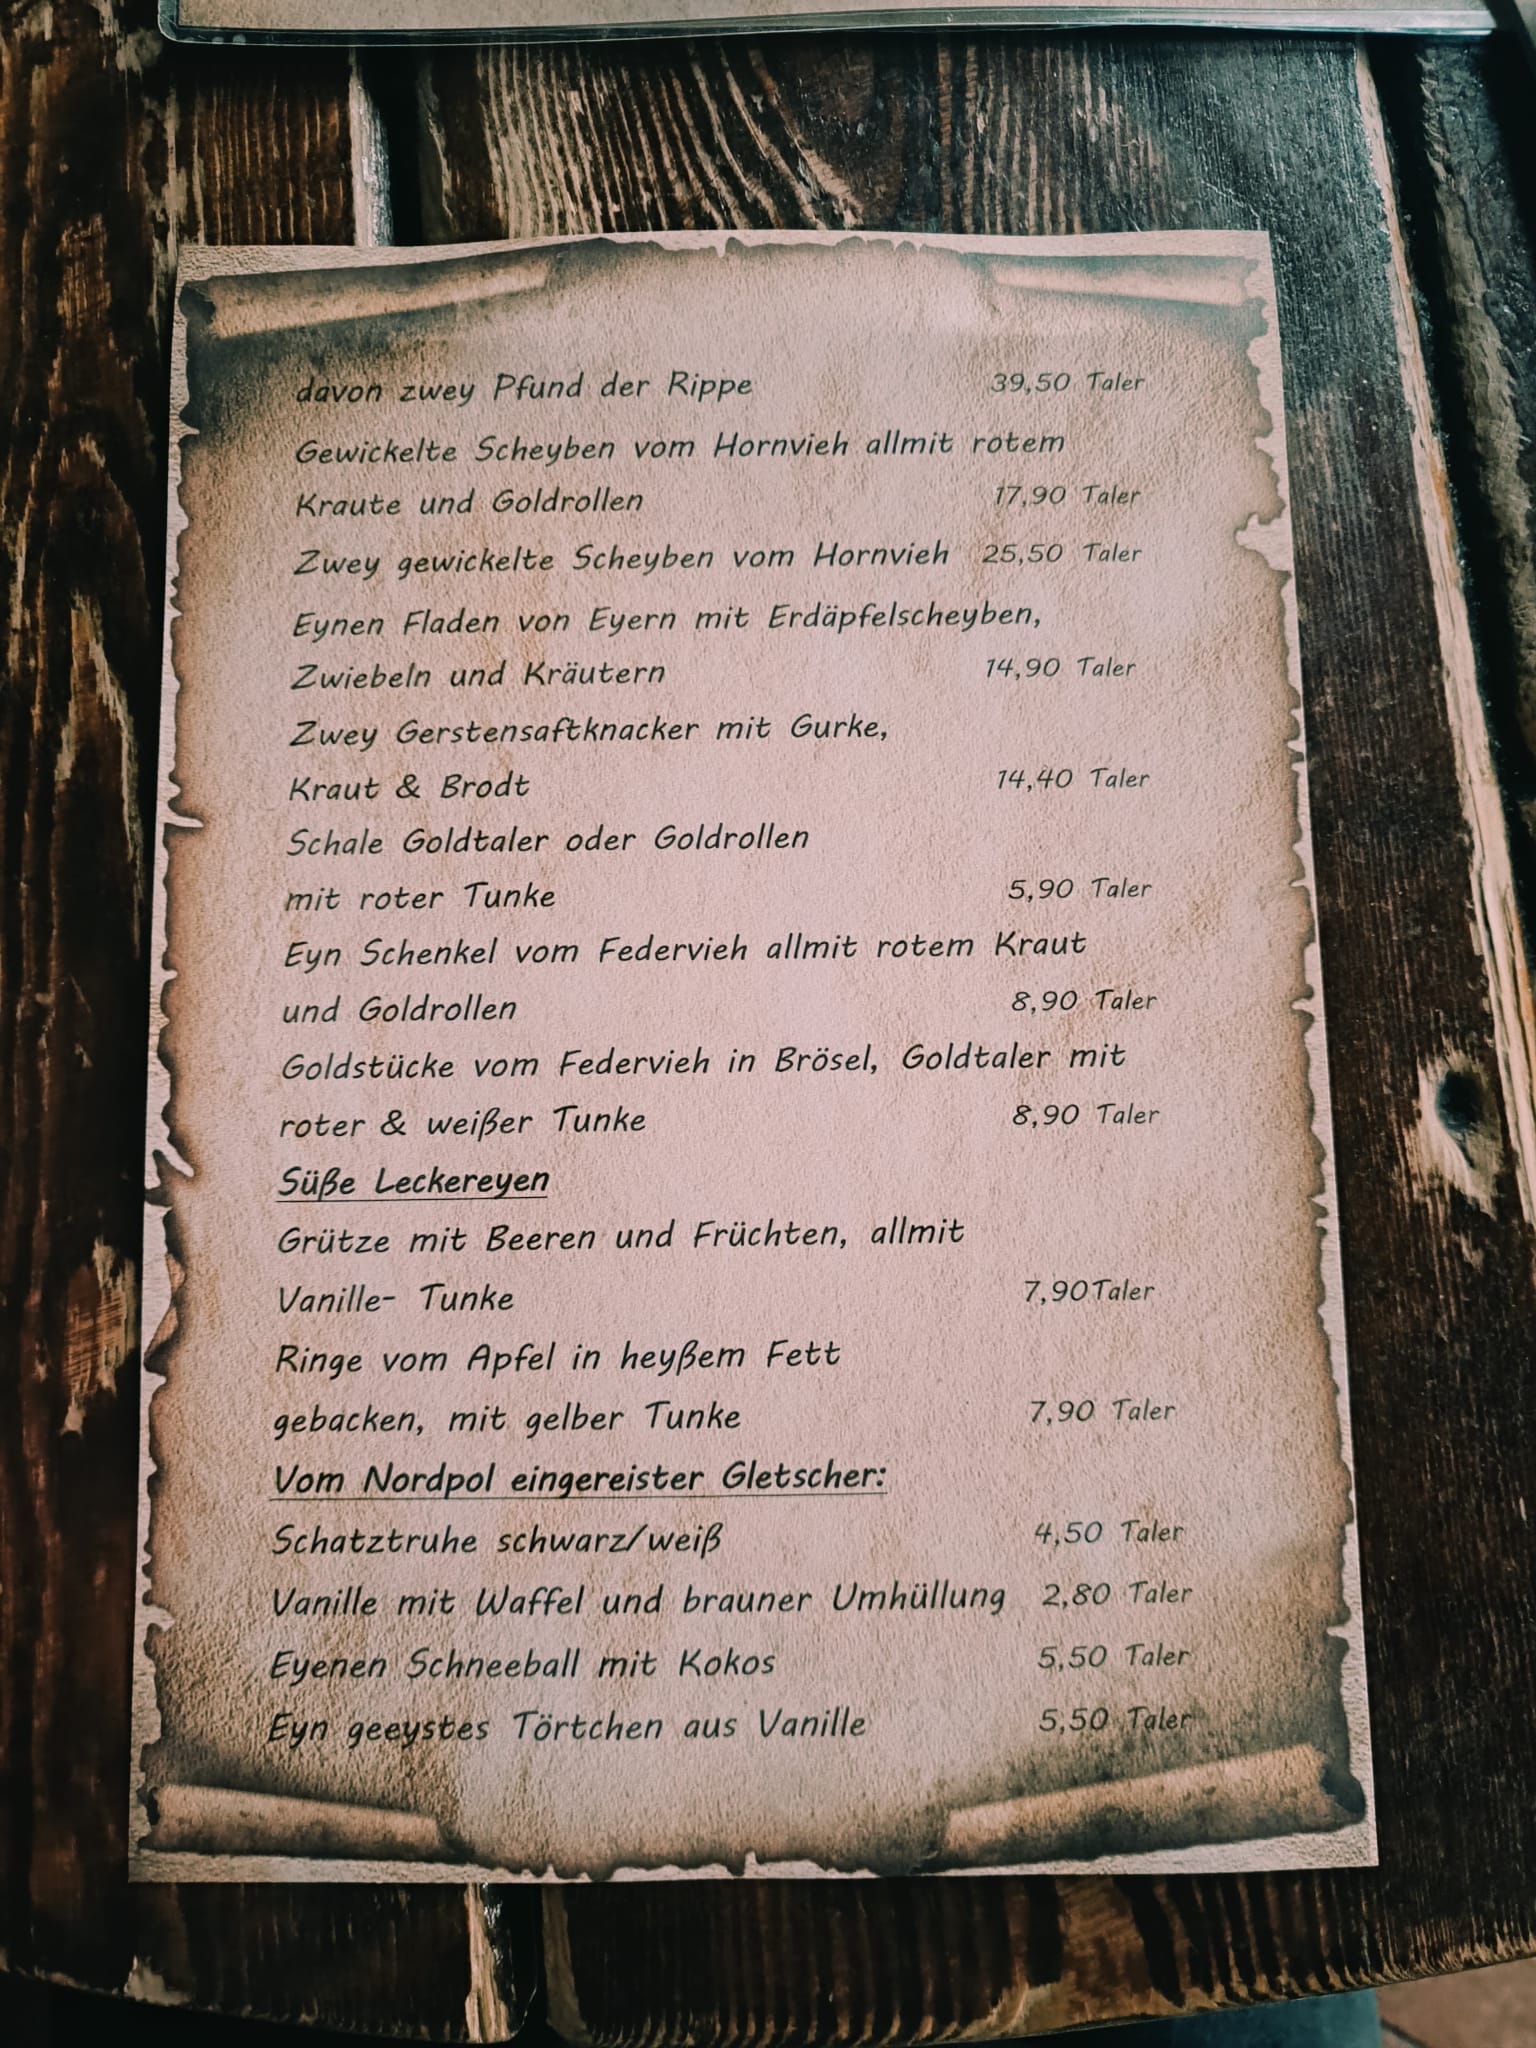 davon zwey Pfund der Rippe 39,50 Taler
Gewickelte Scheyben vom Hornvieh allmit rotem
Kraute und Goldrollen 17,90 Taler
Zwey gewickelte Scheyben vom Hornvieh 25,50 Taler
Eynen Fladen von Eyern mit Erdäpfelscheyben,
Zwiebeln und Kräutern 14,90 Taler
Zwey Gerstensaftknacker mit Gurke,
Kraut & Brodt 14,40 Taler
Schale Goldtaler oder Goldrollen
mit roter Tunke 5,90 Taler
Eyn Schenkel vom Federvieh allmit rotem Kraut
und Goldrollen 8,90 Taler
Goldstücke vom Federvieh in Brösel, Goldtaler mit
roter & weißer Tunke 8,90 Taler
Süße Leckereyen
Grütze mit Beeren und Früchten, allmit
Vanille- Tunke 7,90Taler
Ringe vom Apfel in heyßem Fett
gebacken, mit gelber Tunke 7,90 Taler
Vom Nordpol eingereister Gletscher:
Schatztruhe schwarz/weiß 4,50 Taler
Vanille mit Waffel und brauner Umhüllung 2,80 Taler
Eyenen Schneeball mit Kokos 5,50 Taler
Eyn geeystes Törtchen aus Vanille 5,50 Taler